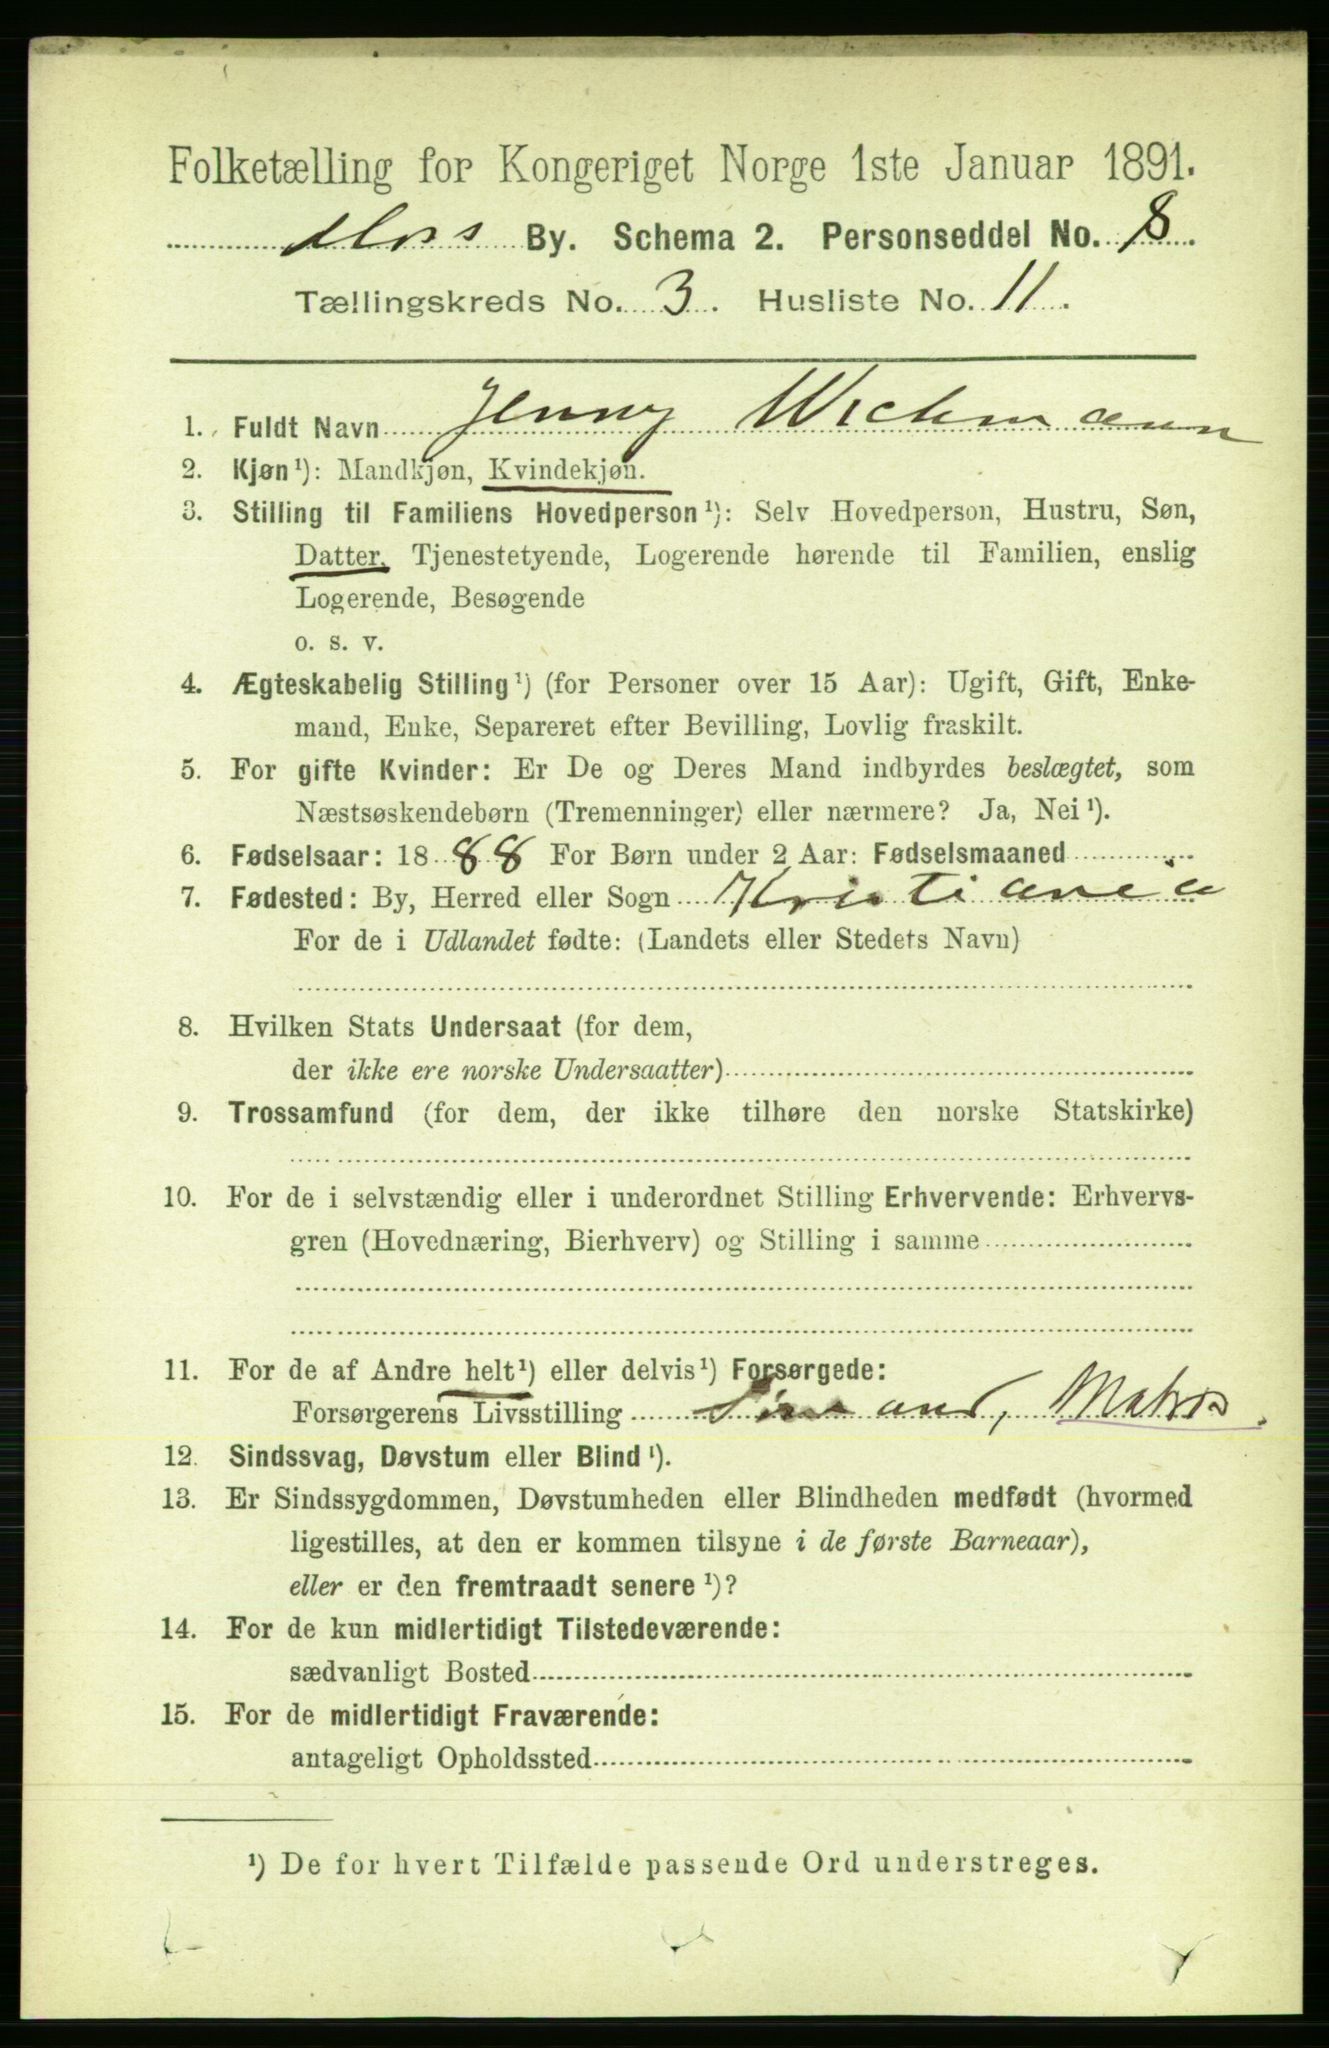 Folketælling for Kongeriget Norge 1ste Januar 1891.
Moss By. Schema 2. Personseddel No. 8.
Tællingskreds No. 3. Husliste No. 11.
1. Fuldt Navn Jenny Wichmann
2. Kjøn¹): Mandkjøn, Kvindekjøn.
3. Stilling til Familiens Hovedperson¹): Selv Hovedperson, Hustru, Søn,
Datter, Tjenestetyende, Logerende hørende til Familien, enslig
Logerende, Besøgende
o. s. v.
4. Ægteskabelig Stilling¹) (for Personer over 15 Aar): Ugift, Gift, Enke-
mand, Enke, Separeret efter Bevilling, Lovlig fraskilt.
5. For gifte Kvinder: Er De og Deres Mand indbyrdes beslægtet, som
Næstsøskendebørn (Tremenninger) eller nærmere? Ja, Nei¹).
6. Fødselsaar: 1888 For Børn under 2 Aar: Fødselsmaaned
7. Fødested: By, Herred eller Sogn Kristiania
For de i Udlandet fødte: (Landets eller Stedets Navn)
8. Hvilken Stats Undersaat (for dem,
der ikke ere norske Undersaatter)
9. Trossamfund (for dem, der ikke tilhøre den norske Statskirke)
10. For de i selvstændig eller i underordnet Stilling Erhvervende: Erhvervs-
gren (Hovednæring, Bierhverv) og Stilling i samme
11. For de af Andre helt¹) eller delvis¹) Forsørgede:
Forsørgerens Livsstilling Sømand, Matros.
12. Sindssvag, Døvstum eller Blind¹).
13. Er Sindssygdommen, Døvstumheden eller Blindheden medfødt (hvormed
ligestilles, at den er kommen tilsyne i de første Barneaar),
eller er den fremtraadt senere¹)?
14. For de kun midlertidigt Tilstedeværende:
sædvanligt Bosted
15. For de midlertidigt Fraværende:
antageligt Opholdssted
¹) De for hvert Tilfælde passende Ord understreges.